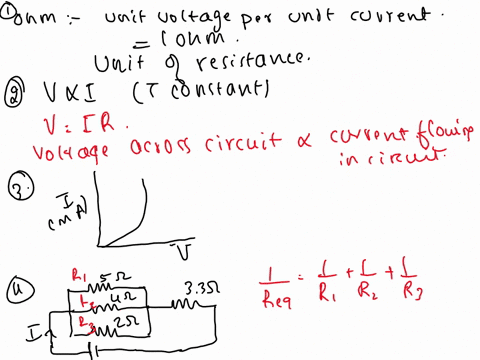 ① ohm :- unit voltage per unit current.
= 1 ohm.
Unit of resistance.
② V ∝ I (T constant)
V = IR.
Voltage across circuit ∝ current flowing
in circuit.
③
I
(mA)
V
④
R1
5Ω
4Ω
R3
2Ω
3.3Ω
I
1/Req = 1/R1 + 1/R2 + 1/R3